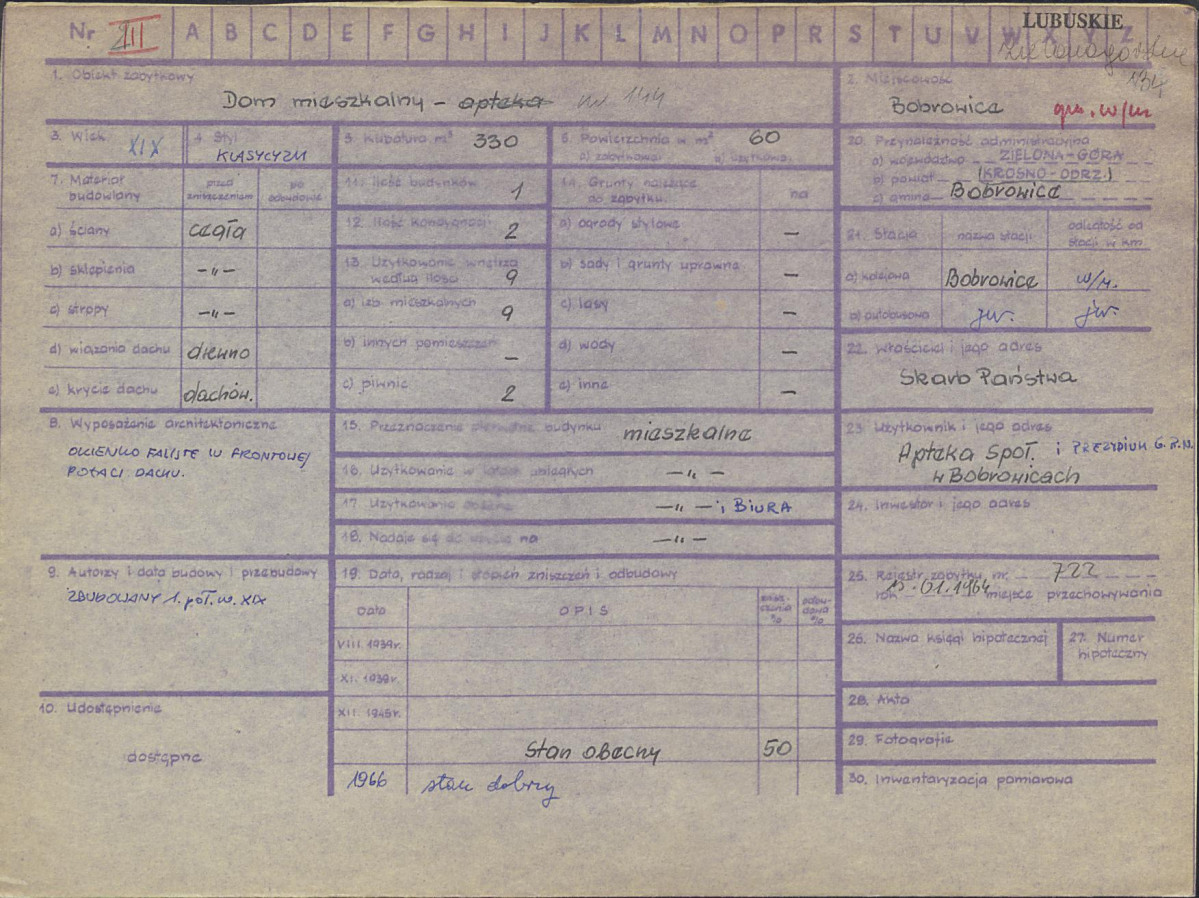 Nr III A B C D E F G H I J K L M N O P R S T U V W X Y Z
LUBUSKIE
134
1. Obiekt zabytkowy
Dom mieszkalny – apteka nr 144
2. Miejscowość
Bobrowice gm. w/m
3. Wiek XIX
4. Styl KLASYCYZM
5. Kubatura m³ 330
6. Powierzchnia w m² 60
a) zabytkowa b) użytkowa
20. Przynależność administracyjna
a) województwo ZIELONA-GÓRA
b) powiat (KROSNO-ODRZ.)
c) gmina Bobrowice
7. Materiał budowlany
przed zniszczeniem
po odbudowie
a) ściany cegła
b) sklepienia –„–
c) stropy –„–
d) wiązania dachu drewno
e) krycie dachu dachów.
11. Ilość budynków 1
12. Ilość kondygnacji 2
13. Użytkowanie wnętrza
według ilości 9
a) izb mieszkalnych 9
b) innych pomieszczeń –
c) piwnic 2
14. Grunty należące
do zabytku
ha
a) ogrody stylowe –
b) sady i grunty uprawne –
c) lasy –
d) wody –
e) inne –
21. Stacja
nazwa stacji
odległość od
stacji w km
a) kolejowa Bobrowice w/m.
b) autobusowa jw. jw.
22. Właściciel i jego adres
Skarb Państwa
8. Wyposażenie architektoniczne
OKIENKO FALISTE W FRONTOWEJ
POŁACI DACHU.
15. Przeznaczenie pierwotne budynku mieszkalne
16. Użytkowanie w latach ubiegłych –„–
17. Użytkowanie obecne –„– i BIURA
18. Nadaje się do użycia na –„–
23. Użytkownik i jego adres
Apteka Społ. i PREZYDIUM G.R.N.
w Bobrowicach
24. Inwestor i jego adres
9. Autorzy i data budowy i przebudowy
ZBUDOWANY 1. poł. w. XIX
19. Data, rodzaj i stopień zniszczeń i odbudowy
Data
OPIS
znisz-
czenia
%
odbu-
dowa
%
VIII.1939r.
XI.1939r.
XII.1945r.
Stan obecny 50
1966 stan dobry
10. Udostępnienie
dostępne
25. Rejestr zabytku nr. 722
rok 15.01.1964 miejsce przechowywania
26. Nazwa księgi hipotecznej
27. Numer
hipoteczny
28. Akta
29. Fotografie
30. Inwentaryzacja pomiarowa